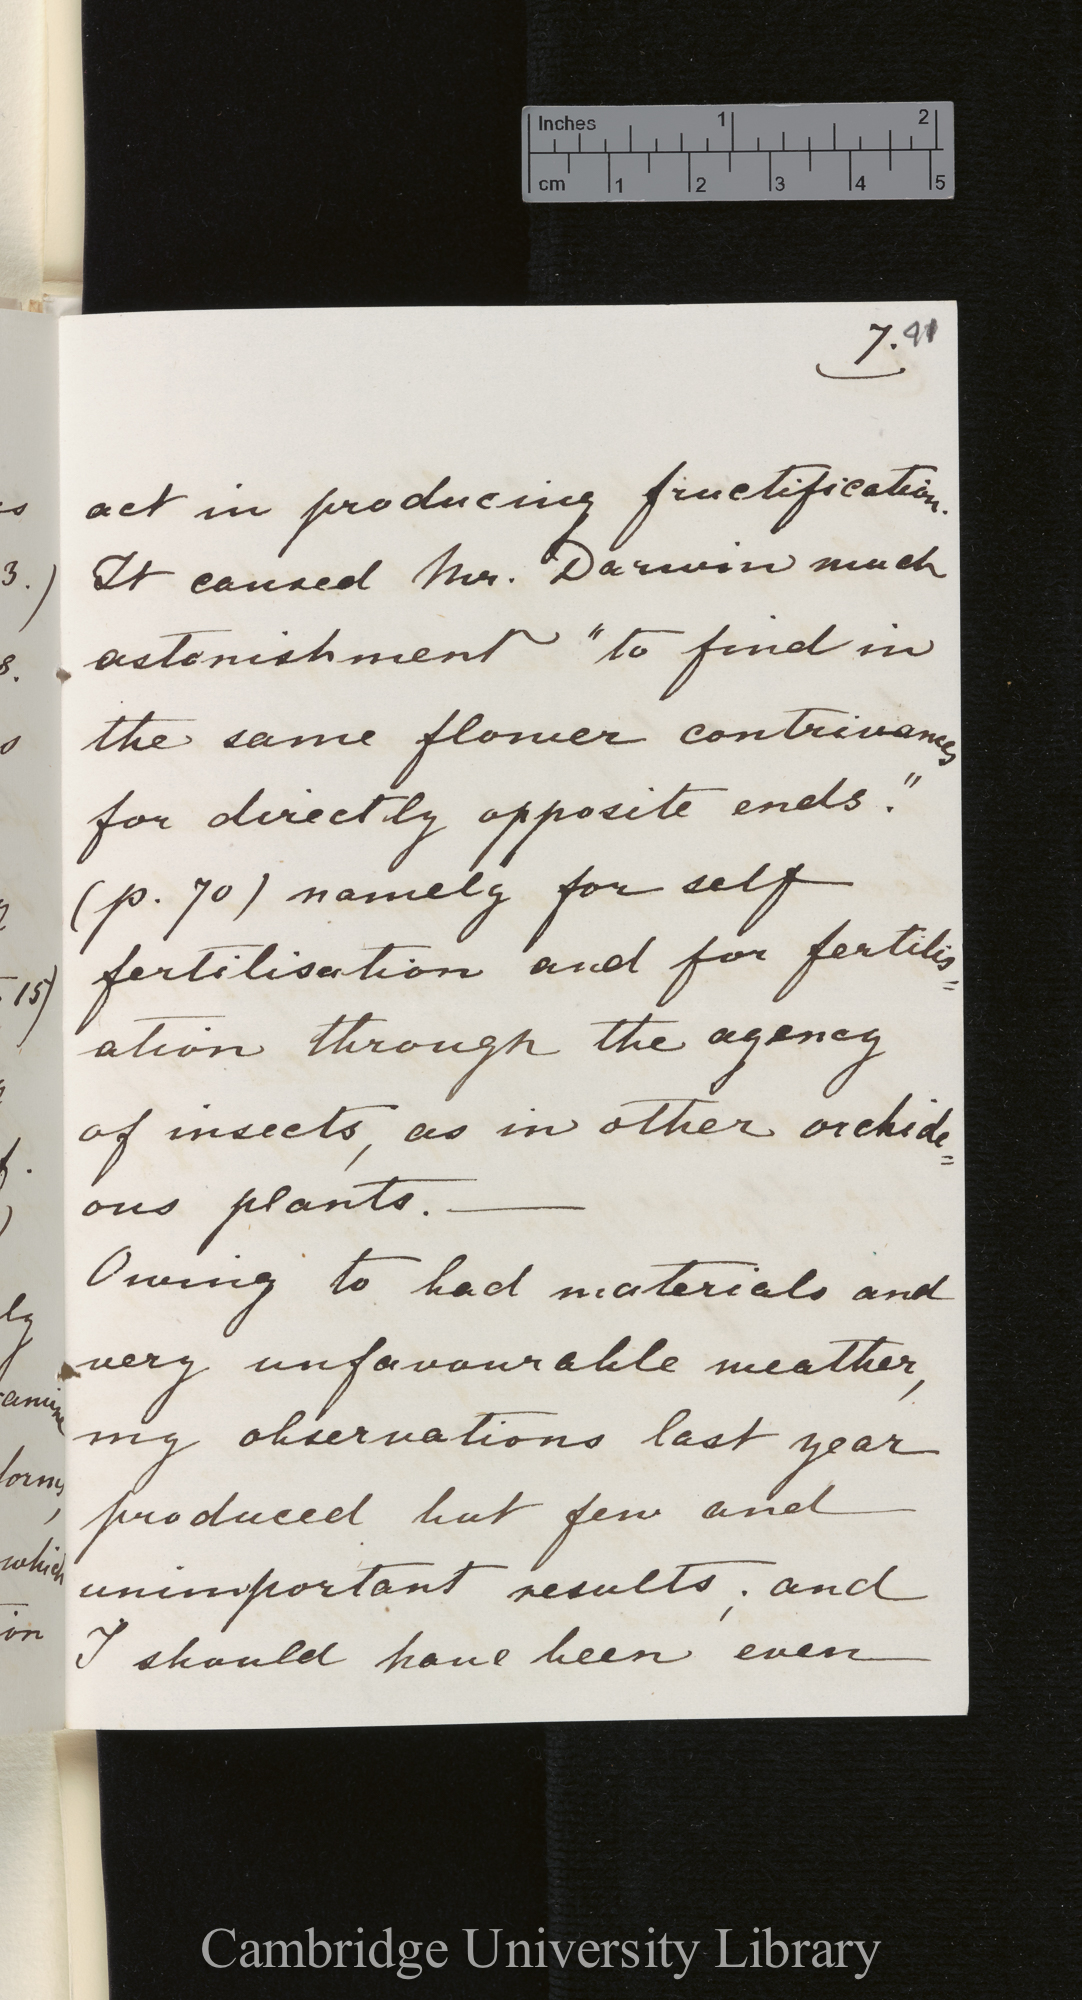 Inches 1 2
cm 1 2 3 4 5
7. 41
act in producing fructification.
It caused Mr. Darwin much
astonishment "to find in
the same flower contrivances
for directly opposite ends."
(p. 70) namely for self
fertilisation and for fertilis=
ation through the agency
of insects, as in other orchide=
ous plants. —
Owing to bad materials and
very unfavourable weather,
my observations last year
produced but few and
unimportant results; and
I should have been even
3.)
8.
15)
ly
which
on
Cambridge University Library